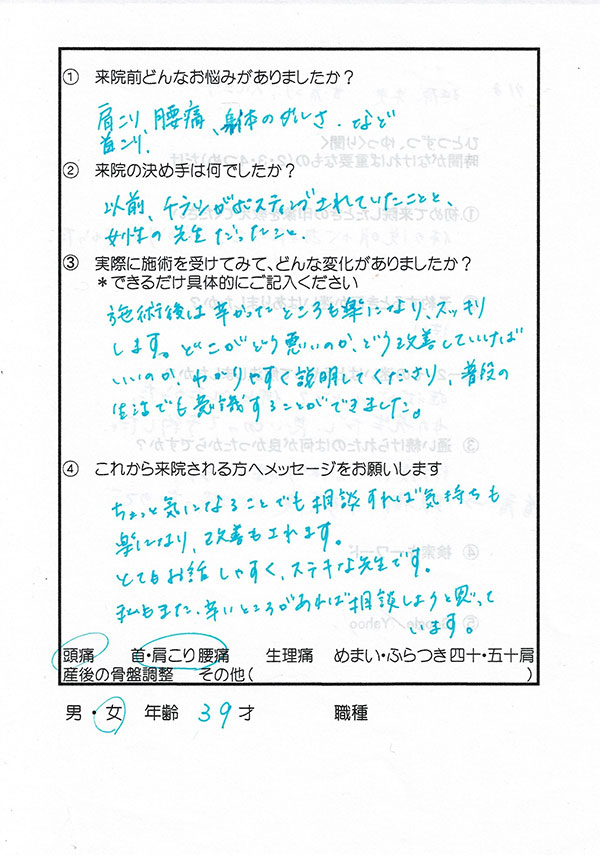 ① 来院前どんなお悩みがありましたか？
肩こり、腰痛、身体のダルさ、など
首こり、
② 来院の決め手は何でしたか？
以前、チラシがポスティングされていたことと、
女性の先生だったこと。
③ 実際に施術を受けてみて、どんな変化がありましたか？
＊できるだけ具体的にご記入ください
施術後は辛かったところも楽になり、スッキリ
します。どこがどう悪いのか、どう改善していけば
いいのか、わかりやすく説明してくださり、普段の
生活でも意識することができました。
④ これから来院される方へメッセージをお願いします
ちょっと気になることでも相談すれば気持ちも
楽になり、改善もされます。
とてもお話しやすく、ステキな先生です。
私もまた、辛いところがあれば相談しようと思って
います。
頭痛 首・肩こり 腰痛 生理痛 めまい・ふらつき 四十・五十肩
産後の骨盤調整 その他( )
男・女 年齢 39才 職種